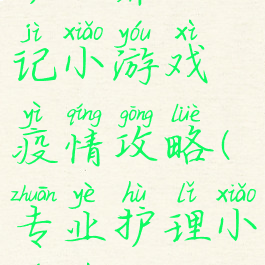 jì xiǎo yóu xì
记小游戏
yì qíng gōng lüè
疫情攻略(
zhuān yè hù lǐ xiǎo
专业护理小